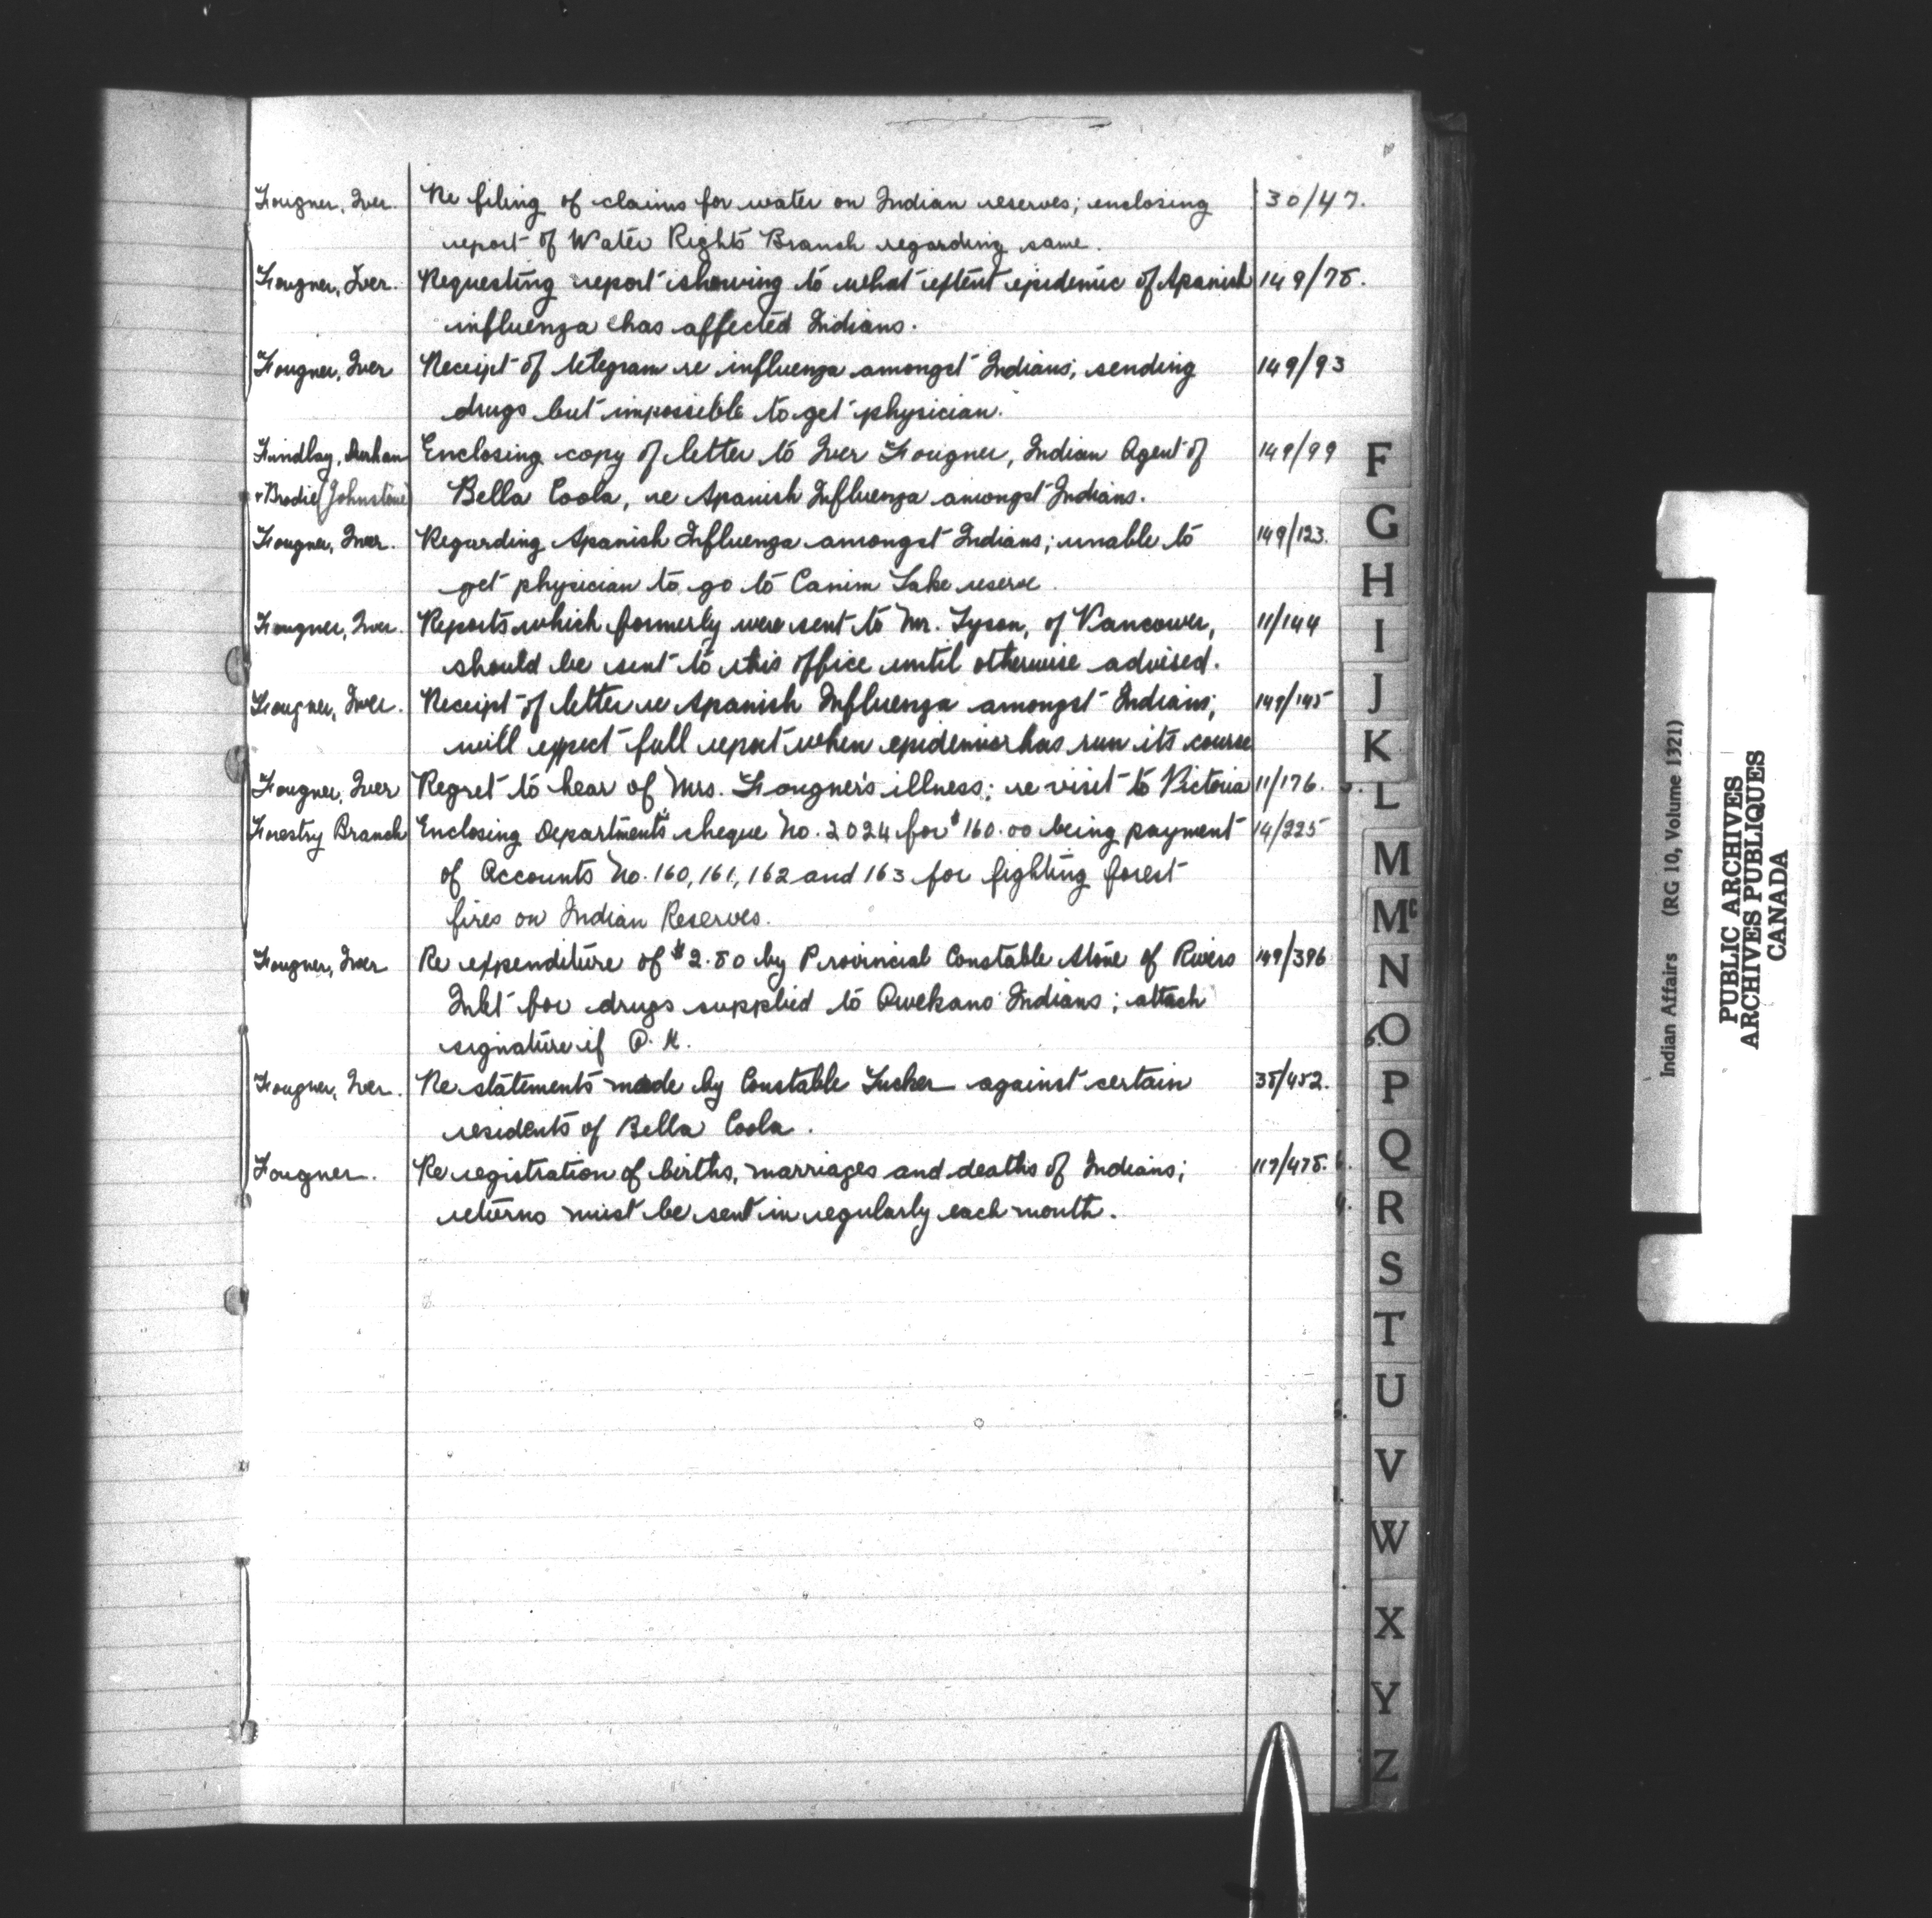 Fougner, Iver. Re filing of claims for water on Indian reserves; enclosing 30/47.
report of Water Rights Branch regarding same.
Fougner, Iver. Requesting report showing to what extent epidemic of Spanish 149/78.
influenza has affected Indians.
Fougner, Iver Receipt of telegram re influenza amongst Indians; sending 149/93
drugs but impossible to get physician.
Findlay, Durham Enclosing copy of letter to Iver Fougner, Indian Agent of 149/99
+ Brodie (Johnstone) Bella Coola, re Spanish Influenza amongst Indians.
Fougner, Iver. Regarding Spanish Influenza amongst Indians; unable to 149/123.
get physician to go to Canim Lake reserve.
Fougner, Iver. Reports which formerly were sent to Mr. Tyson, of Vancouver, 11/144
should be sent to this office until otherwise advised.
Fougner, Iver. Receipt of letter re Spanish Influenza amongst Indians; 149/145
will expect full report when epidemic has run its course
Fougner, Iver Regret to hear of Mrs. Fougner's illness; re visit to Victoria 11/176.
Forestry Branch Enclosing Department's cheque No. 2024 for $160.00 being payment 14/225
of Accounts No. 160, 161, 162 and 163 for fighting forest
fires on Indian Reserves.
Fougner, Iver Re expenditure of $2.80 by Provincial Constable Stone of Rivers 149/396
Inlet for drugs supplied to Owekano Indians; attach
signature if O.K.
Fougner, Iver. Re statements made by Constable Tucker against certain 38/452.
residents of Bella Coola.
Fougner. Re registration of births, marriages and deaths of Indians; 117/478.
returns must be sent in regularly each month.
F
G
H
I
J
K
L
M
Mc
N
O
P
Q
R
S
T
U
V
W
X
Y
Z
Indian Affairs (RG 10, Volume 1321)
PUBLIC ARCHIVES
ARCHIVES PUBLIQUES
CANADA